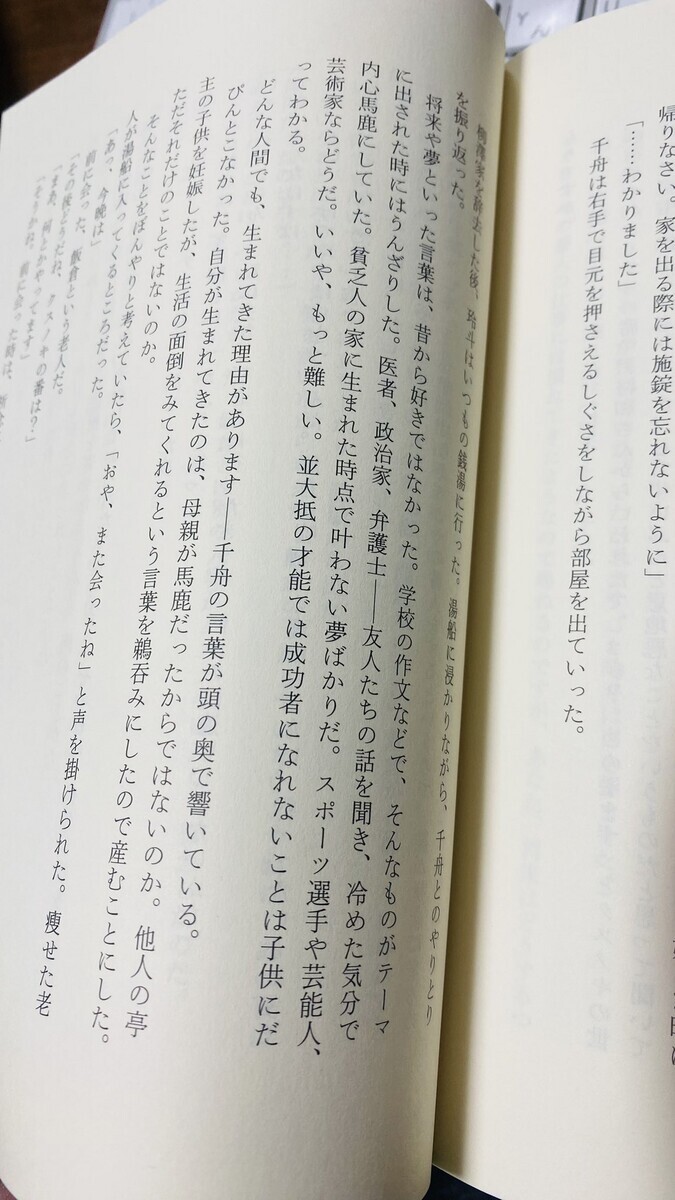 帰りなさい。家を出る際には施錠を忘れないように」
「……わかりました」
千舟は右手で目元を押さえるしぐさをしながら部屋を出ていった。
柳澤家を辞去した後、玲斗はいつもの銭湯に行った。湯船に浸かりながら、千舟とのやりとり
を振り返った。
将来や夢といった言葉は、昔から好きではなかった。学校の作文などで、そんなものがテーマ
に出された時にはうんざりした。医者、政治家、弁護士――友人たちの話を聞き、冷めた気分で
内心馬鹿にしていた。貧乏人の家に生まれた時点で叶わない夢ばかりだ。スポーツ選手や芸能人、
芸術家ならどうだ。いいや、もっと難しい。並大抵の才能では成功者になれないことは子供にだ
ってわかる。
どんな人間でも、生まれてきた理由があります――千舟の言葉が頭の奥で響いている。
ぴんとこなかった。自分が生まれてきたのは、母親が馬鹿だったからではないのか。他人の亭
主の子供を妊娠したが、生活の面倒をみてくれるという言葉を鵜呑みにしたので産むことにした。
ただそれだけのことではないのか。
そんなことをぼんやりと考えていたら、「おや、また会ったね」と声を掛けられた。痩せた老
人が湯船に入ってくるところだった。
「あっ、今晩は」
前に会った、飯倉という老人だ。
「その後どうだね、クスノキの番は?」
「まあ、何とかやってます」
「そうかね。前に会った時は、